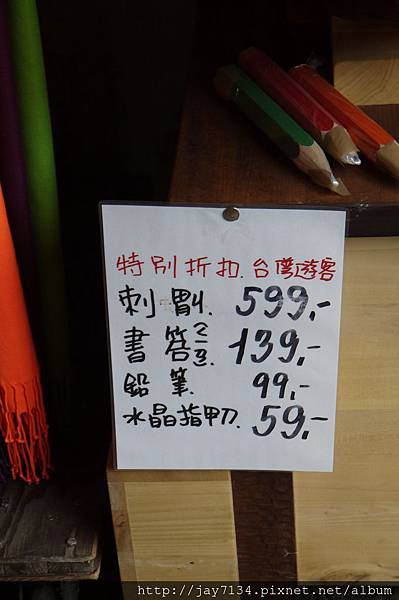 特別折扣.台灣遊客
刺蝟. 599,-
書签2-3. 139,-
鉛筆. 99,-
水晶指甲刀. 59,-
http://jay7134.pixnet.net/album